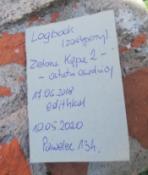 Logbook
(zastępczy)
Zielona Kępa 2 -
- ostatni
17.06.2018
10.05.2020
Pawelec 134